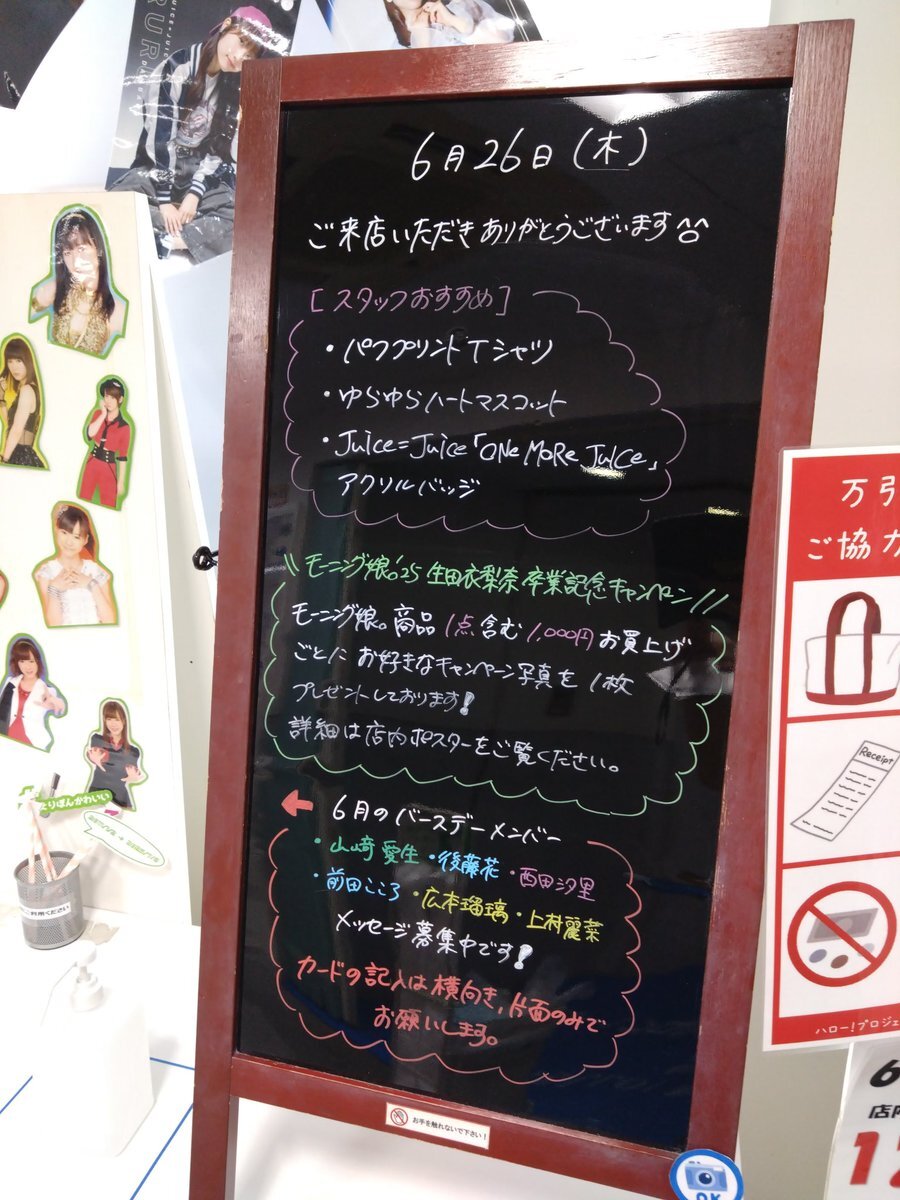 6月26日(木)
ご来店いただきありがとうございます
[スタッフおすすめ]
・パフプリントTシャツ
・ゆらゆらハートマスコット
・Juice=Juice「ONe MoRe JuIce」
アクリルバッジ
\\ モーニング娘。'25 生田衣梨奈 卒業記念キャンペーン //
モーニング娘。商品 1点 含む 1,000円 お買上げ
ごとに お好きなキャンペーン写真を 1枚
プレゼントしております!
詳細は店内ポスターをご覧ください。
← 6月のバースデーメンバー
・山﨑 愛生 ・後藤花 ・西田汐里
・前田こころ ・広本瑠璃 ・上村麗菜
メッセージ募集中です!
カードの記入は横向き,片面のみで
お願いします。
お手を触れないで下さい!
OK
万引
ご協力
Receipt
ハロー!プロジェ
6
店内
とりぽんかわいい
ご利用ください